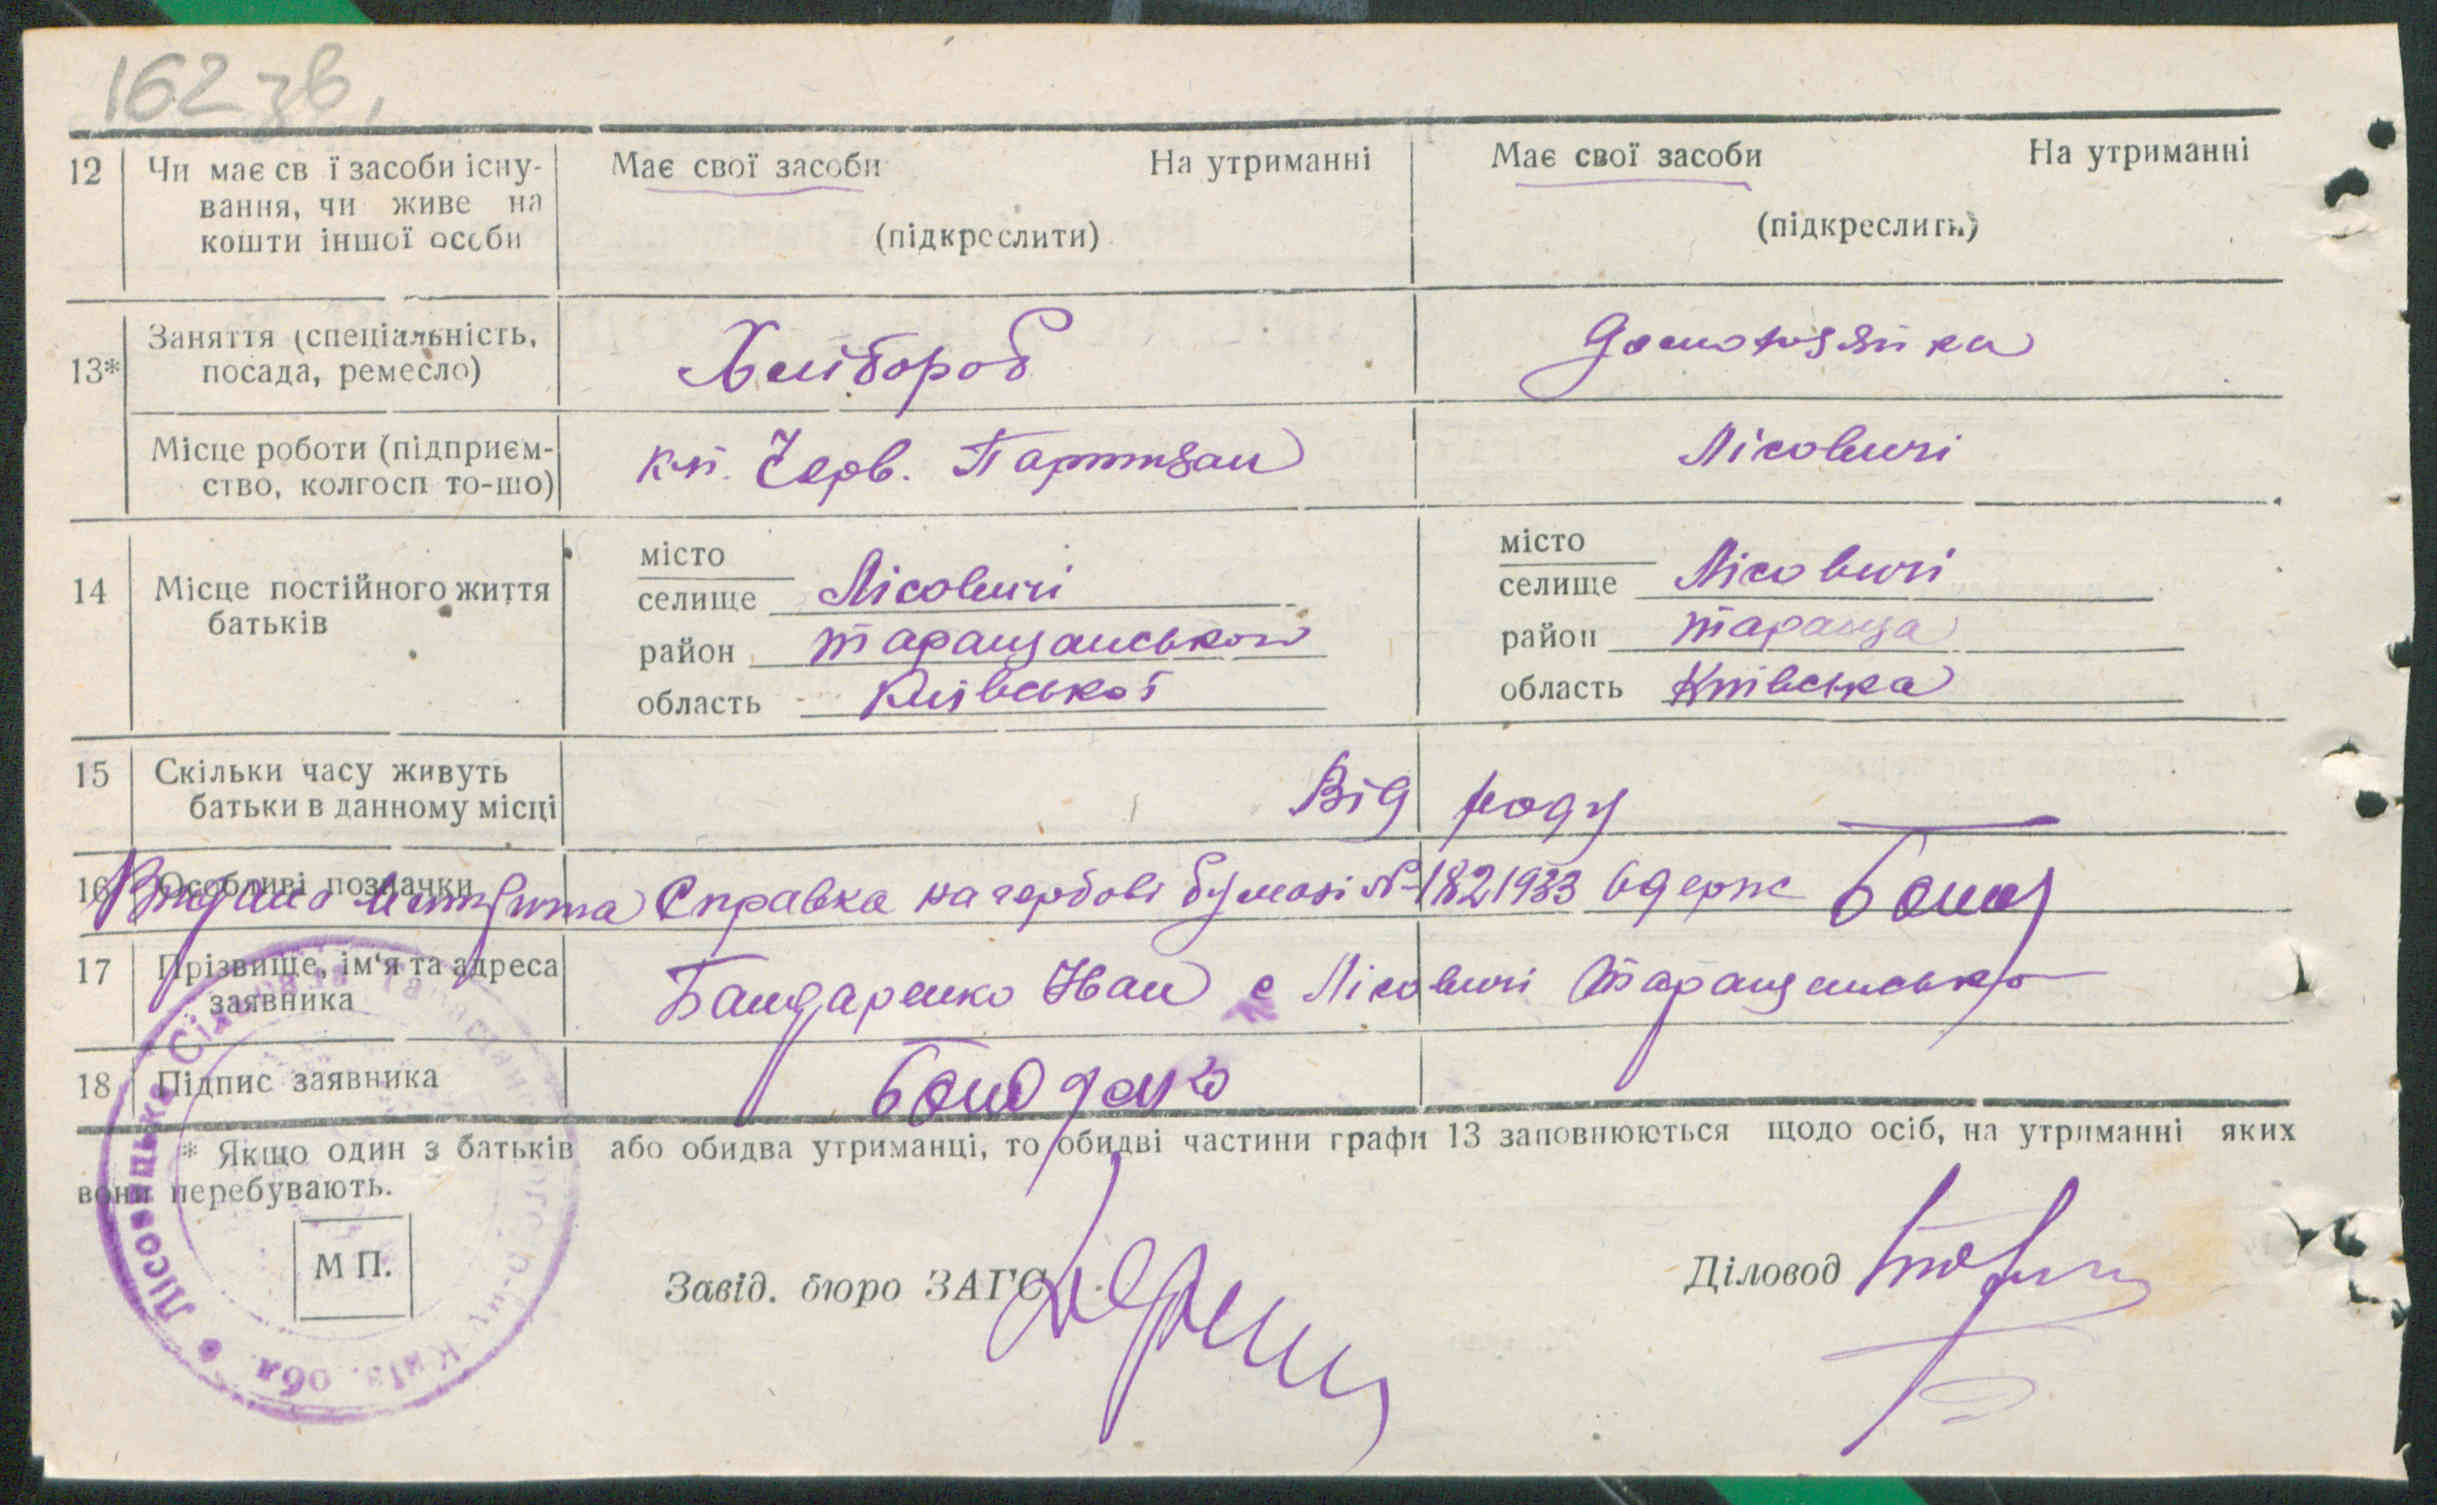 162 зв.
12 Чи має св ї засоби існу- Має свої засоби На утриманні Має свої засоби На утриманні
вання, чи живе на
кошти іншої особи (підкреслити) (підкреслить)
13* Заняття (спеціальність, Хлібороб домохозяйка
посада, ремесло)
Місце роботи (підприєм- кп. Черв. Партизан Лісовичі
ство, колгосп то-що)
14 Місце постійного життя місто місто
батьків селище Лісовичі селище Лісовичі
район Таращанського район Тараща
область Київської область Київська
15 Скільки часу живуть Від роду
батьки в данному місці
16 Особливі позначки Справка на гербові бумазі № 1821933 одерж
17 Прізвище, ім'я та адреса Бандаренко Іван с Лісовичі Таращансько
заявника
18 Підпис заявника
* Якщо один з батьків або обидва утриманці, то обидві частини графи 13 заповнюються щодо осіб, на утриманні яких
вони перебувають.
М П.
Завід. бюро ЗАГС Діловод
Лісовицька Сільська Рада Київ. обл.